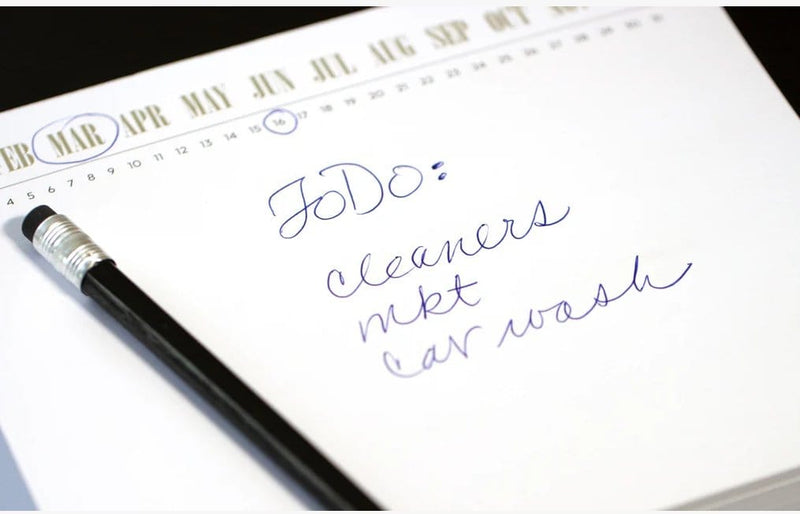 FEB MAR APR MAY JUN JUL AUG SEP OCT
4 5 6 7 8 9 10 11 12 13 14 15 16 17 18 19 20 21 22 23 24 25 26 27 28 29 30 31
ToDo:
cleaners
mkt
car wash